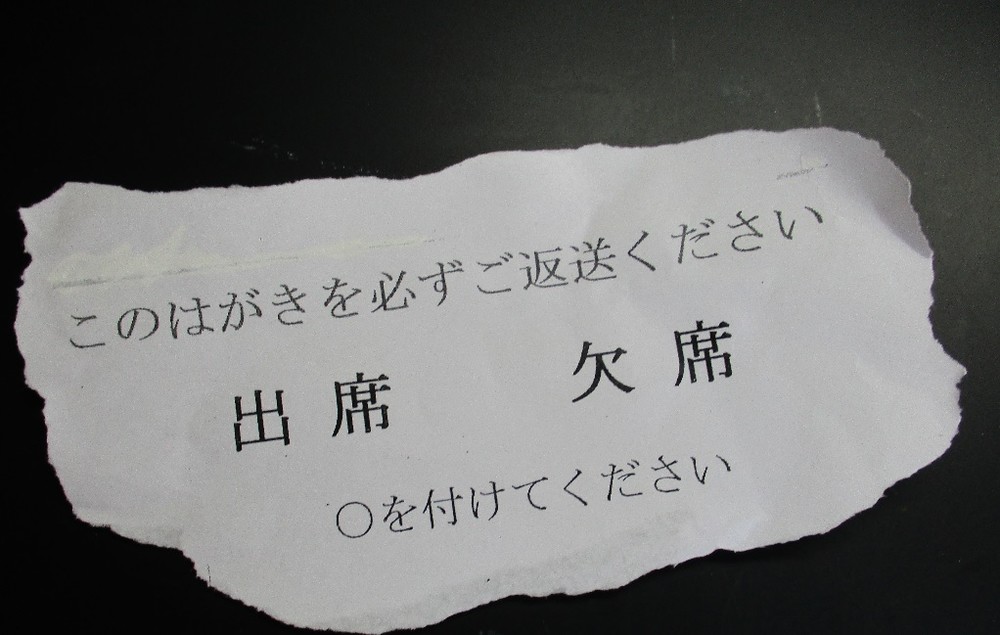 このはがきを必ずご返送ください
出席 欠席
〇を付けてください